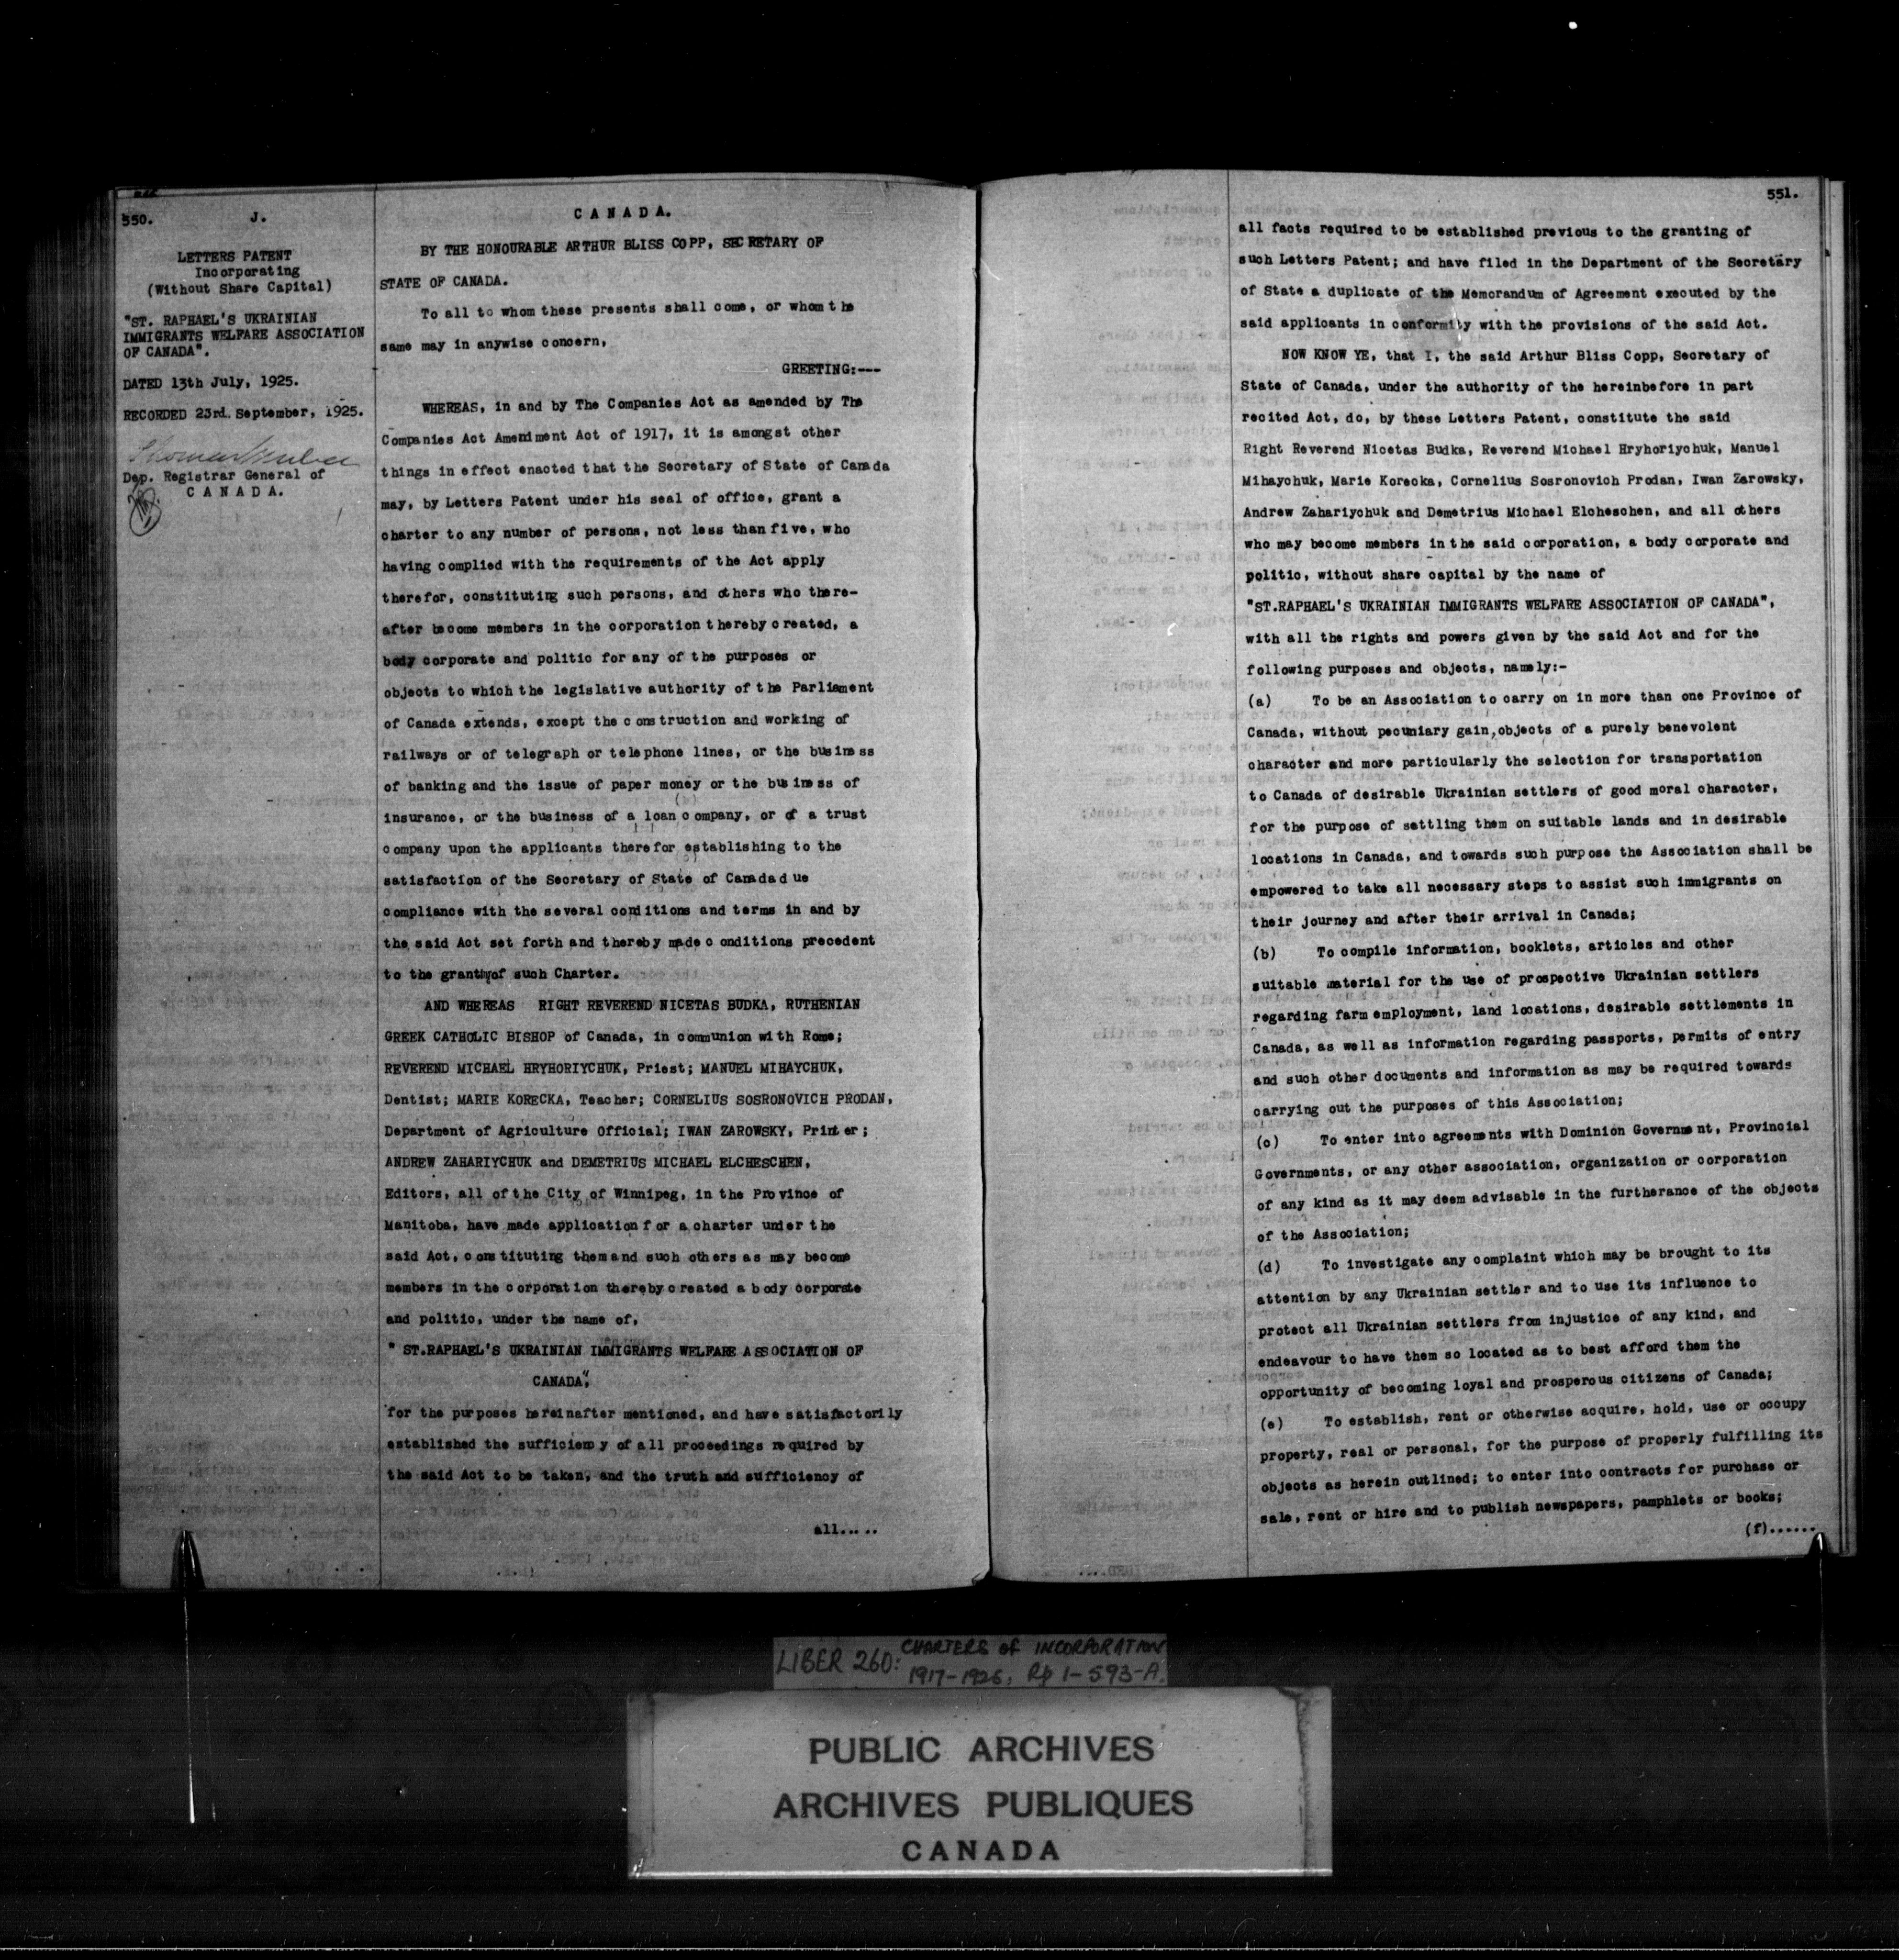 550. J.
LETTERS PATENT
Incorporating
(Without Share Capital)
"ST. RAPHAEL'S UKRAINIAN
IMMIGRANTS WELFARE ASSOCIATION
OF CANADA".
DATED 13th July, 1925.
RECORDED 23rd. September, 1925.
Dep. Registrar General of
C A N A D A.
C A N A D A.
BY THE HONOURABLE ARTHUR BLISS COPP, SECRETARY OF
STATE OF CANADA.
To all to whom these presents shall come, or whom the
same may in anywise concern,
GREETING:---
WHEREAS, in and by The Companies Act as amended by The
Companies Act Amendment Act of 1917, it is amongst other
things in effect enacted that the Secretary of State of Canada
may, by Letters Patent under his seal of office, grant a
charter to any number of persons, not less than five, who
having complied with the requirements of the Act apply
therefor, constituting such persons, and others who there-
after become members in the corporation thereby created, a
body corporate and politic for any of the purposes or
objects to which the legislative authority of the Parliament
of Canada extends, except the construction and working of
railways or of telegraph or telephone lines, or the business
of banking and the issue of paper money or the business of
insurance, or the business of a loan company, or of a trust
company upon the applicants therefor establishing to the
satisfaction of the Secretary of State of Canada due
compliance with the several conditions and terms in and by
the said Act set forth and thereby made conditions precedent
to the granting of such Charter.
AND WHEREAS RIGHT REVEREND NICETAS BUDKA, RUTHENIAN
GREEK CATHOLIC BISHOP of Canada, in communion with Rome;
REVEREND MICHAEL HRYHORIYCHUK, Priest; MANUEL MIHAYCHUK,
Dentist; MARIE KORECKA, Teacher; CORNELIUS SOSRONOVICH PRODAN,
Department of Agriculture Official; IWAN ZAROWSKY, Printer;
ANDREW ZAHARIYCHUK and DEMETRIUS MICHAEL ELCHESCHEN,
Editors, all of the City of Winnipeg, in the Province of
Manitoba, have made application for a charter under the
said Act, constituting them and such others as may become
members in the corporation thereby created a body corporate
and politic, under the name of,
" ST.RAPHAEL'S UKRAINIAN IMMIGRANTS WELFARE ASSOCIATION OF
CANADA",
for the purposes hereinafter mentioned, and have satisfactorily
established the sufficiency of all proceedings required by
the said Act to be taken, and the truth and sufficiency of
all.....
551.
all facts required to be established previous to the granting of
such Letters Patent; and have filed in the Department of the Secretary
of State a duplicate of the Memorandum of Agreement executed by the
said applicants in conformity with the provisions of the said Act.
NOW KNOW YE, that I, the said Arthur Bliss Copp, Secretary of
State of Canada, under the authority of the hereinbefore in part
recited Act, do, by these Letters Patent, constitute the said
Right Reverend Nicetas Budka, Reverend Michael Hryhoriychuk, Manuel
Mihaychuk, Marie Korecka, Cornelius Sosronovich Prodan, Iwan Zarowsky,
Andrew Zahariychuk and Demetrius Michael Elcheschen, and all others
who may become members in the said corporation, a body corporate and
politic, without share capital by the name of
"ST.RAPHAEL'S UKRAINIAN IMMIGRANTS WELFARE ASSOCIATION OF CANADA",
with all the rights and powers given by the said Act and for the
following purposes and objects, namely:-
(a) To be an Association to carry on in more than one Province of
Canada, without pecuniary gain, objects of a purely benevolent
character and more particularly the selection for transportation
to Canada of desirable Ukrainian settlers of good moral character,
for the purpose of settling them on suitable lands and in desirable
locations in Canada, and towards such purpose the Association shall be
empowered to take all necessary steps to assist such immigrants on
their journey and after their arrival in Canada;
(b) To compile information, booklets, articles and other
suitable material for the use of prospective Ukrainian settlers
regarding farm employment, land locations, desirable settlements in
Canada, as well as information regarding passports, permits of entry
and such other documents and information as may be required towards
carrying out the purposes of this Association;
(c) To enter into agreements with Dominion Government, Provincial
Governments, or any other association, organization or corporation
of any kind as it may deem advisable in the furtherance of the objects
of the Association;
(d) To investigate any complaint which may be brought to its
attention by any Ukrainian settler and to use its influence to
protect all Ukrainian settlers from injustice of any kind, and
endeavour to have them so located as to best afford them the
opportunity of becoming loyal and prosperous citizens of Canada;
(e) To establish, rent or otherwise acquire, hold, use or occupy
property, real or personal, for the purpose of properly fulfilling its
objects as herein outlined; to enter into contracts for purchase or
sale, rent or hire and to publish newspapers, pamphlets or books;
(f)......
LIBER 260: CHARTERS of INCORPORATION
1917-1926, Pp 1-593-A.
PUBLIC ARCHIVES
ARCHIVES PUBLIQUES
CANADA